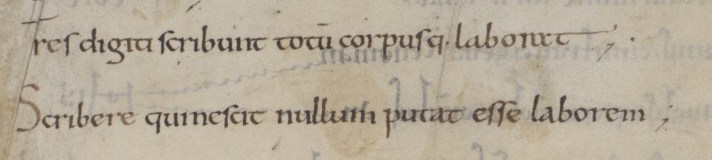 Tres digiti scribunt totū corpusq; laborat ;.
Scribere qui nescit nullum putat esse laborem ;